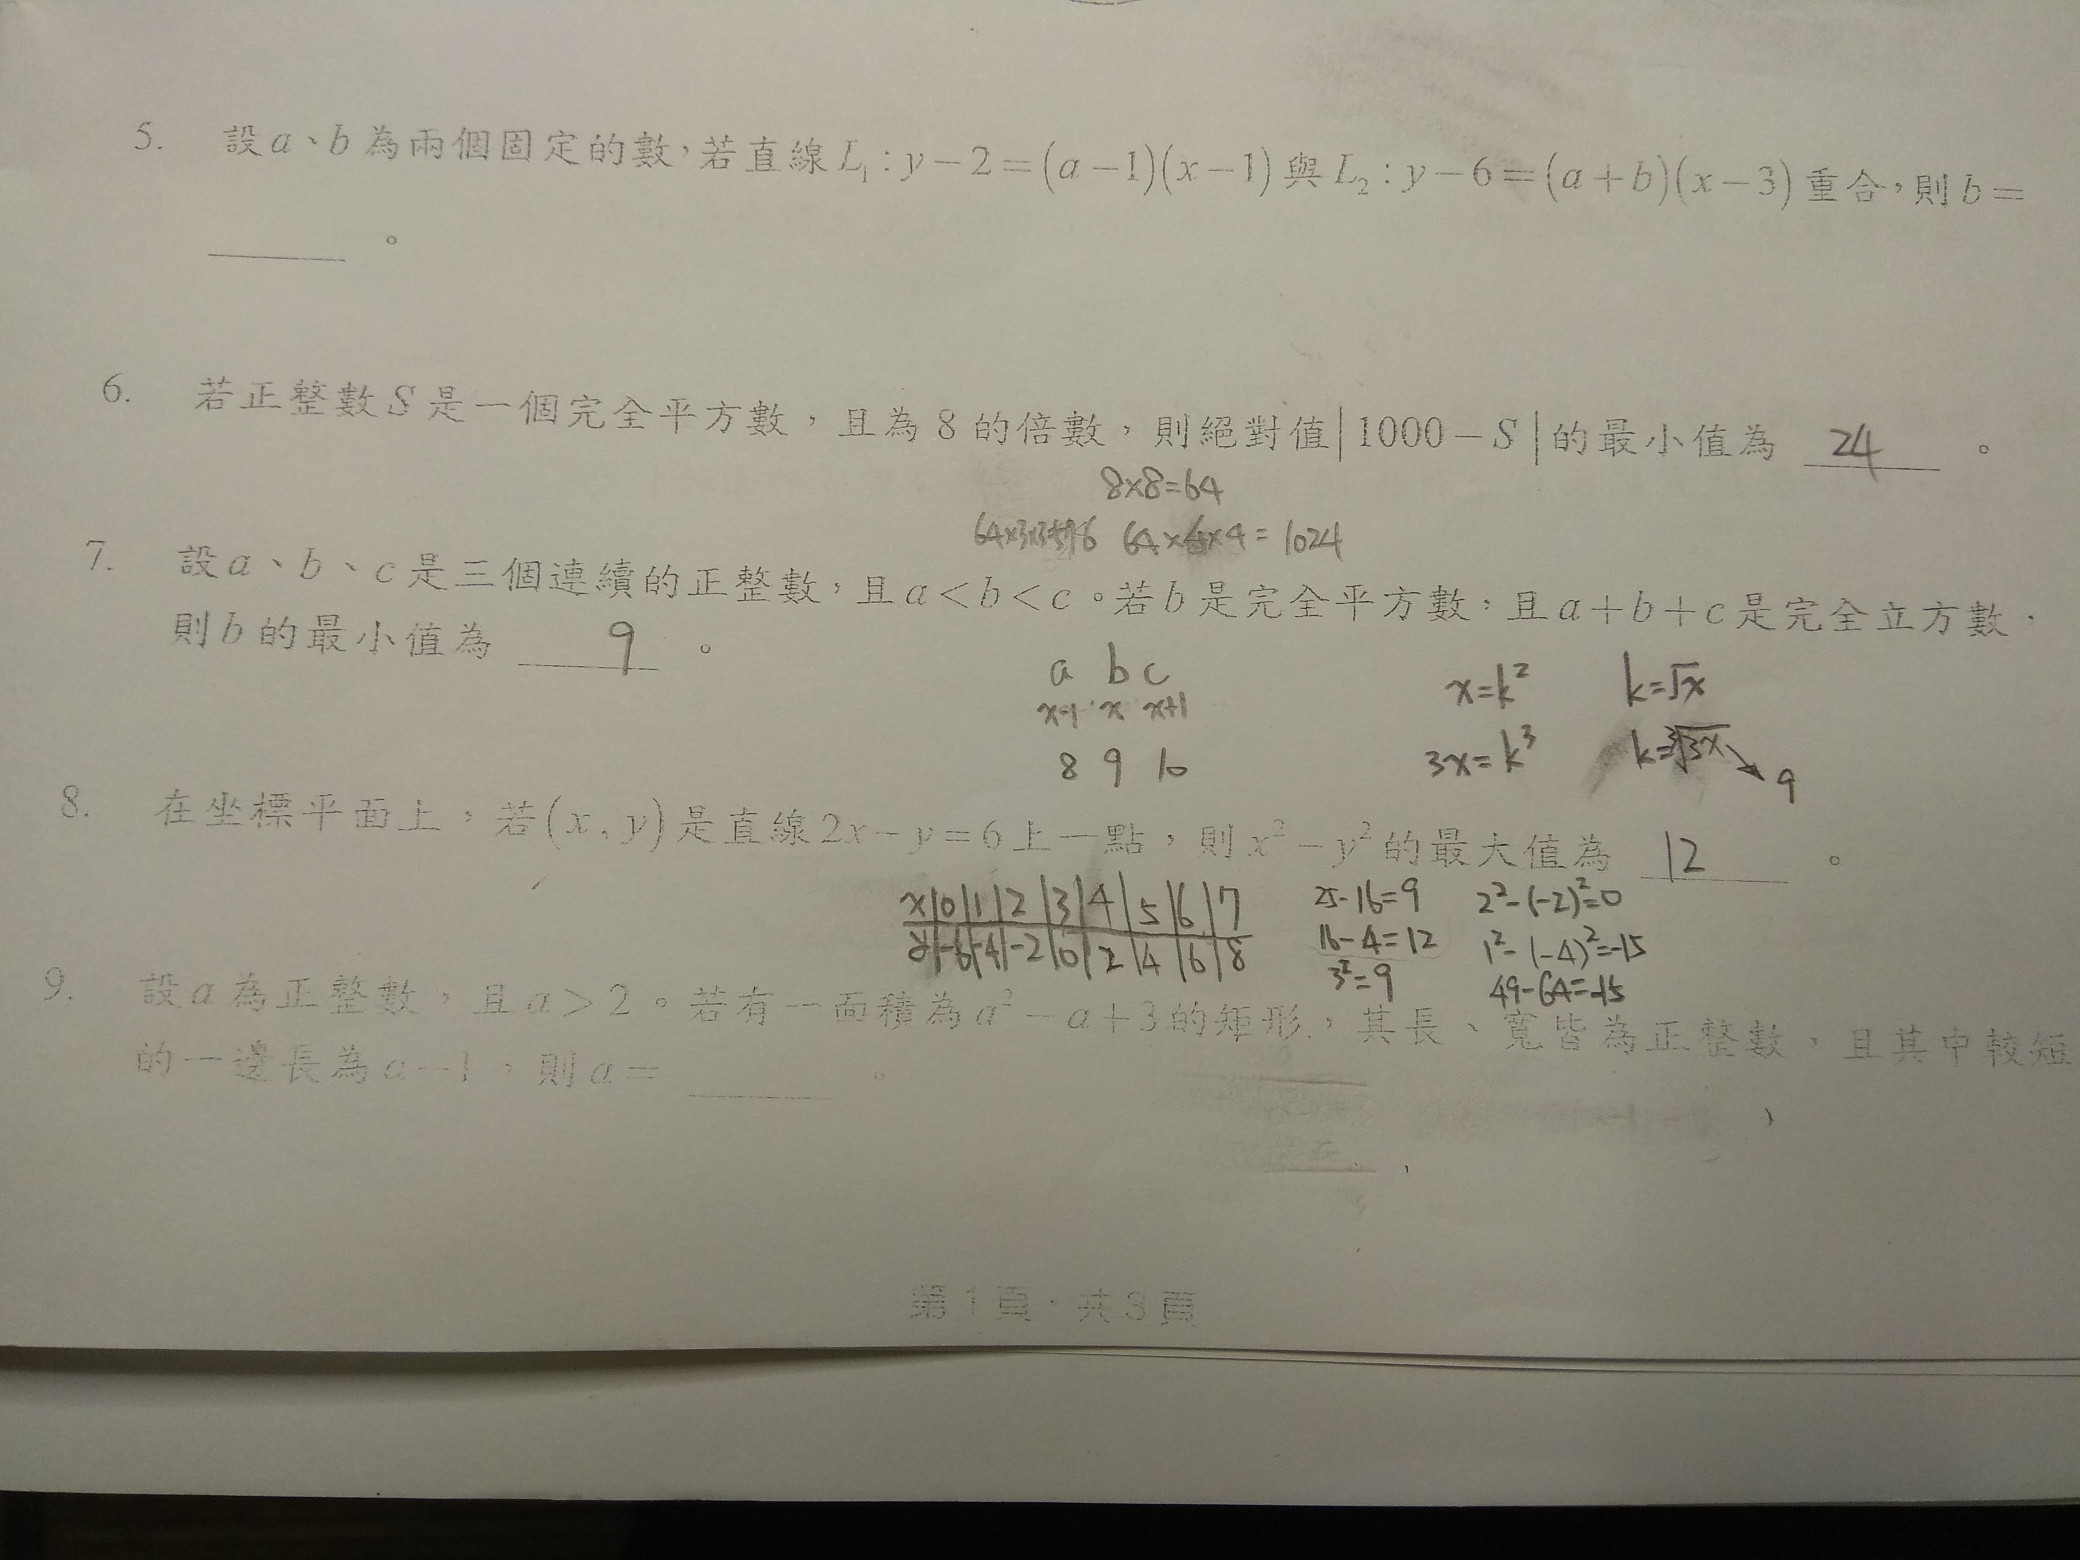 5. 設a、b為兩個固定的數，若直線L₁:y-2=(a-1)(x-1)與L₂:y-6=(a+b)(x-3)重合，則b=
______。
6. 若正整數S是一個完全平方數，且為8的倍數，則絕對值|1000-S|的最小值為 24 。
8×8=64
64×4×4=1024
7. 設a、b、c是三個連續的正整數，且a<b<c。若b是完全平方數，且a+b+c是完全立方數，
則b的最小值為 9 。
a b c
x-1 x x+1
8 9 10
x=k² k=√x
3x=k³ k=³√3x 9
8. 在坐標平面上，若(x,y)是直線2x-y=6上一點，則x²-y²的最大值為 12 。
x|0|1|2|3|4|5|6|7
y|-6|-4|-2|0|2|4|6|8
25-16=9 2²-(-2)²=0
16-4=12 1²-(-4)²=-15
3²=9 49-64=-15
9. 設a為正整數，且a>2。若有一面積為a²-a+3的矩形，其長、寬皆為正整數，且其中較短
的一邊長為a-1，則a= ______。
第1頁，共3頁